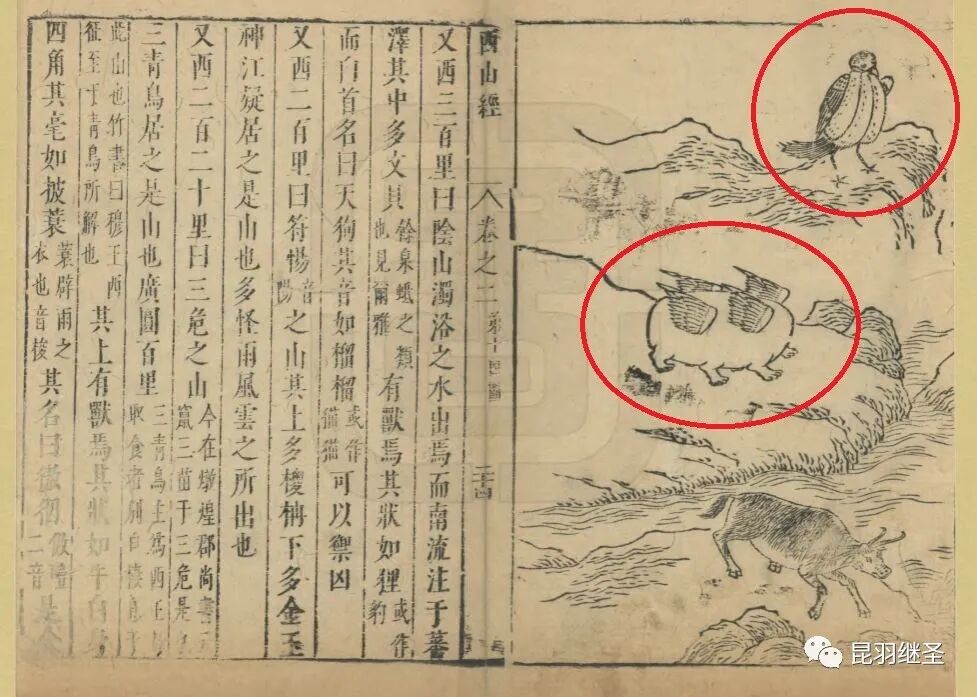 西山經
卷之二
又西三百里曰陰山濁浴之水出焉而南流注于蕃
澤其中多文貝餘泉蚔之類也見爾雅有獸焉其狀如狸或作豹
而白首名曰天狗其音如榴榴或作貓貓可以禦凶
又西二百里曰符惕音陽之山其上多椶枬下多金玉
神江疑居之是山也多怪雨風雲之所出也
又西二百二十里曰三危之山今在燉煌郡尚書云竄三苗于三危是也
三青鳥居之是山也廣圓百里三青鳥主爲西王母取食者別自棲息于
此山也竹書曰穆王西征至于青鳥所解也其上有獸焉其狀如牛白身
四角其毫如披蓑蓑辟雨之衣也音梭其名曰二音是食
昆羽继圣